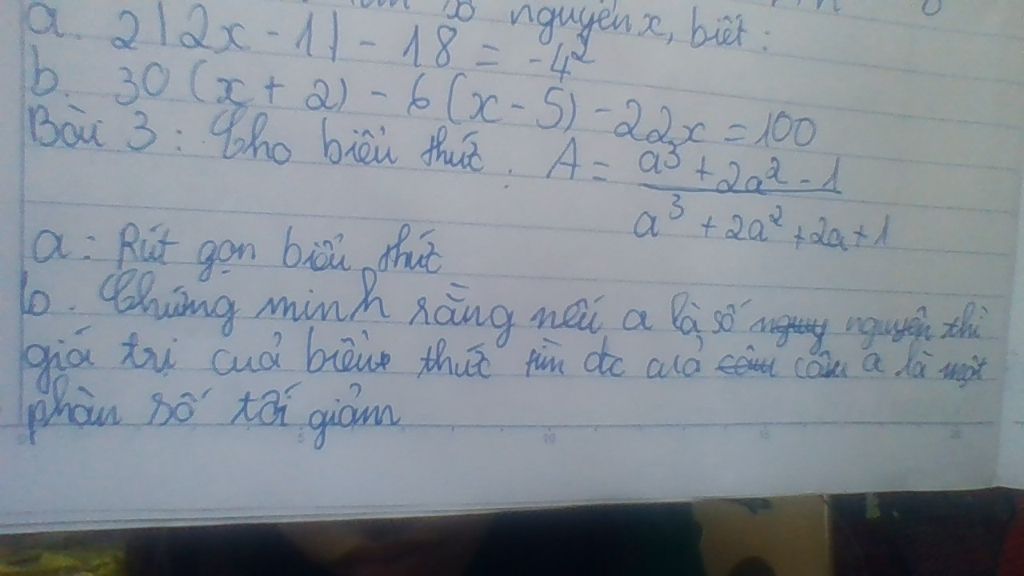 số nguyên x, biết:
a. 2|2x - 1| - 18 = -4²
b. 30(x + 2) - 6(x - 5) - 22x = 100
Bài 3: Cho biểu thức. A = a³ + 2a² - 1 / a³ + 2a² + 2a + 1
a: Rút gọn biểu thức
b. Chứng minh rằng nếu a là số nguyên thì
giá trị cuả biểu thức tìm đc cuả câu a là một
phân số tối giản